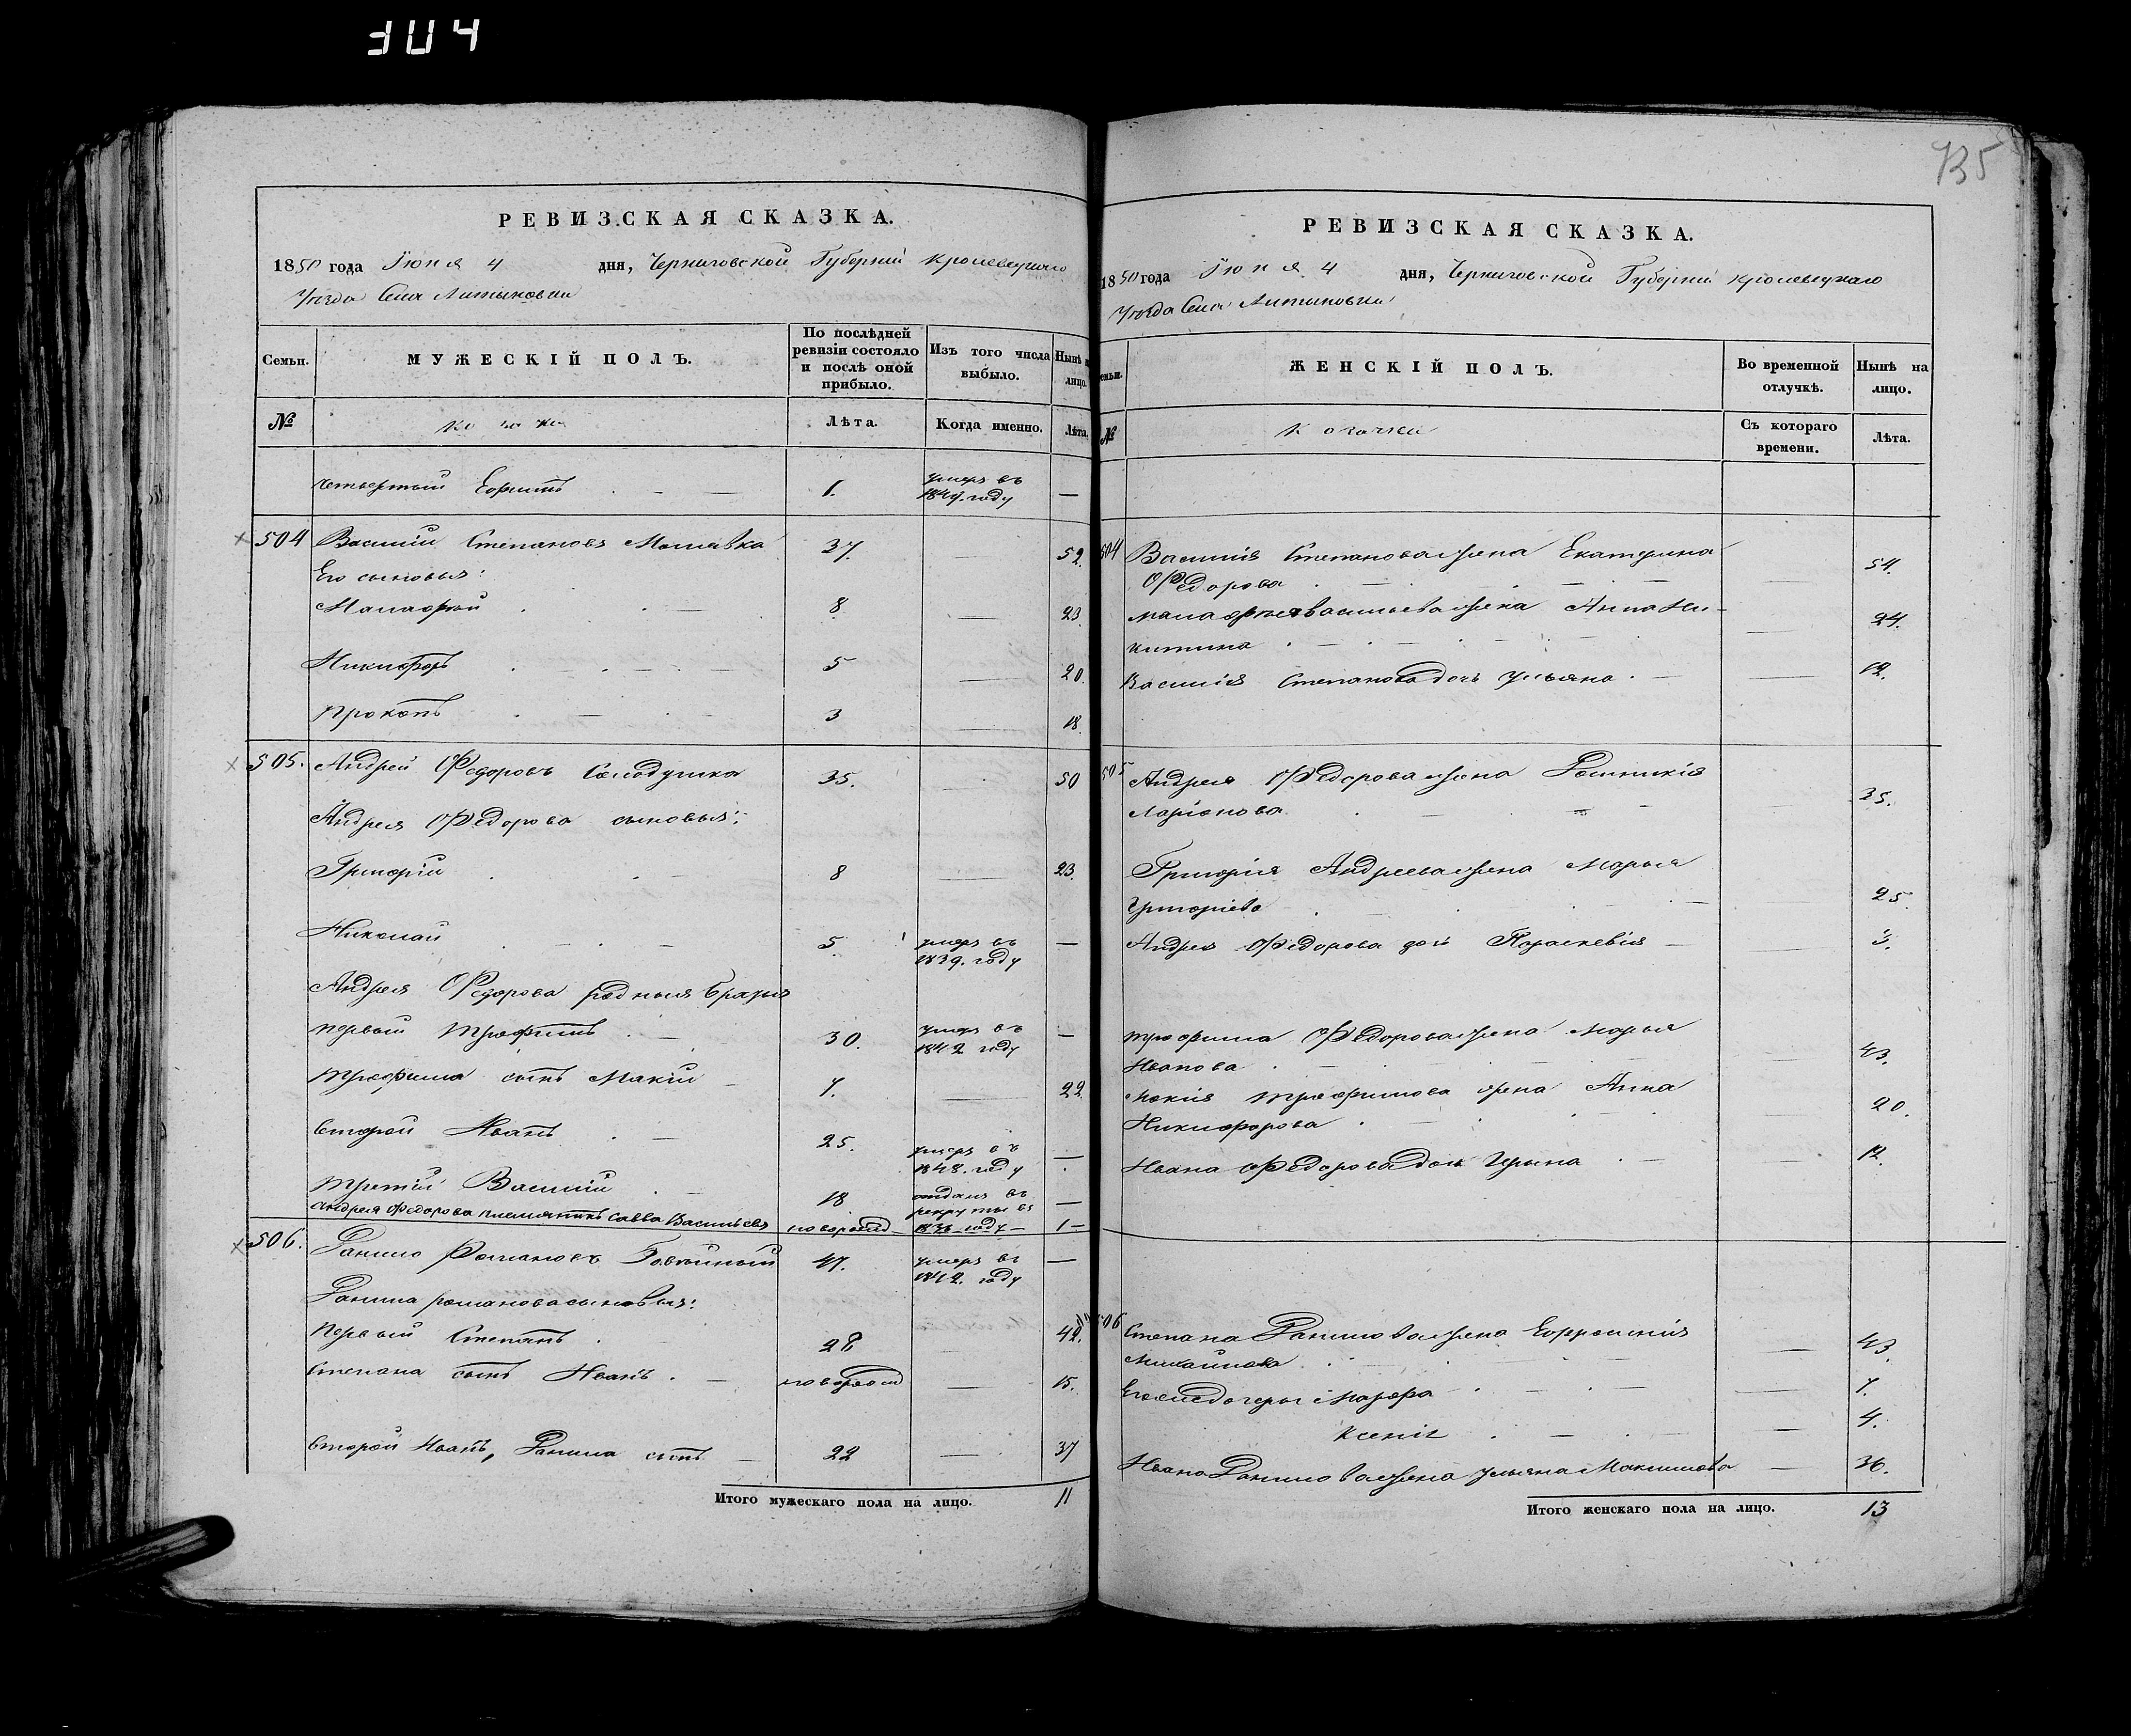 735
РЕВИЗСКАЯ СКАЗКА.
1850 года Іюня 4 дня, Черниговской Губерніи Кролевецкаго
Уезда Села Литвиновки
Семьи. МУЖЕСКІЙ ПОЛЪ. По послѣдней ревизіи состояло и послѣ оной прибыло. Изъ того числа выбыло. Нынѣ на лицо.
№ Козаки Лѣта. Когда именно. Лѣта.
четвертый Ефимъ 1. умеръ въ 1847. году —
504 Василій Степановъ 37. — 52.
Его сыновья:
Малафей 8. — 23.
Никифоръ 5 — 20.
Прокопъ 3 18.
505. Андрей Федоровъ 35. — 50
Андрея Федорова сыновья:
Григорій 8 — 23.
Николай 5. умеръ въ 1839. году —
Андрея Федорова родныя братья
первый Трофимъ 30. умеръ въ 1842 году —
Трофима сынъ Макій 7. — 22.
второй Иванъ 25. умеръ въ 1848. году —
третій Василій 18 отданъ въ рекруты въ 1836 году —
Андрея Федорова племянникъ Савва Васильевъ новорожд — 1 —
506. Данило Романовъ 47. умеръ въ 1842. году —
Данила романова сыновья:
первый Степанъ 28. 42.
Степана сынъ Иванъ новорожд — 15.
второй Иванъ, Данила сынъ 22 — 37
Итого мужескаго пола на лицо. 11
РЕВИЗСКАЯ СКАЗКА.
1850 года Іюня 4 дня, Черниговской Губерніи Кролевецкаго
Уезда Села Литвиновки
Семьи. ЖЕНСКІЙ ПОЛЪ. Во временной отлучкѣ. Нынѣ на лицо.
№ Козачки Съ котораго времени. Лѣта.
504 Василія Степанова жена Екатерина
Федорова — 54.
Малафея Васильева жена Анна Ни-
китина — 24.
Василія Степанова дочь Ульяна — 12.
505 Андрея Федорова жена
Ларіонова — 35.
Григорія Андреева жена Марья
Григорієва 25.
Андрея Федорова дочь Параскевія — 3.
Трофима Федорова жена Марья
Иванова — 43.
Мокія Трофимова жена Анна
Никифорова — 20.
Ивана Федорова дочь Ирина — 12.
506 Степана Данилова жена Ефросинія
Михайлова — 43.
Его же дочери Марфа — 7.
Ксенія — 4.
Ивана Данилова жена Ульяна Максимова — 36.
Итого женскаго пола на лицо. 13